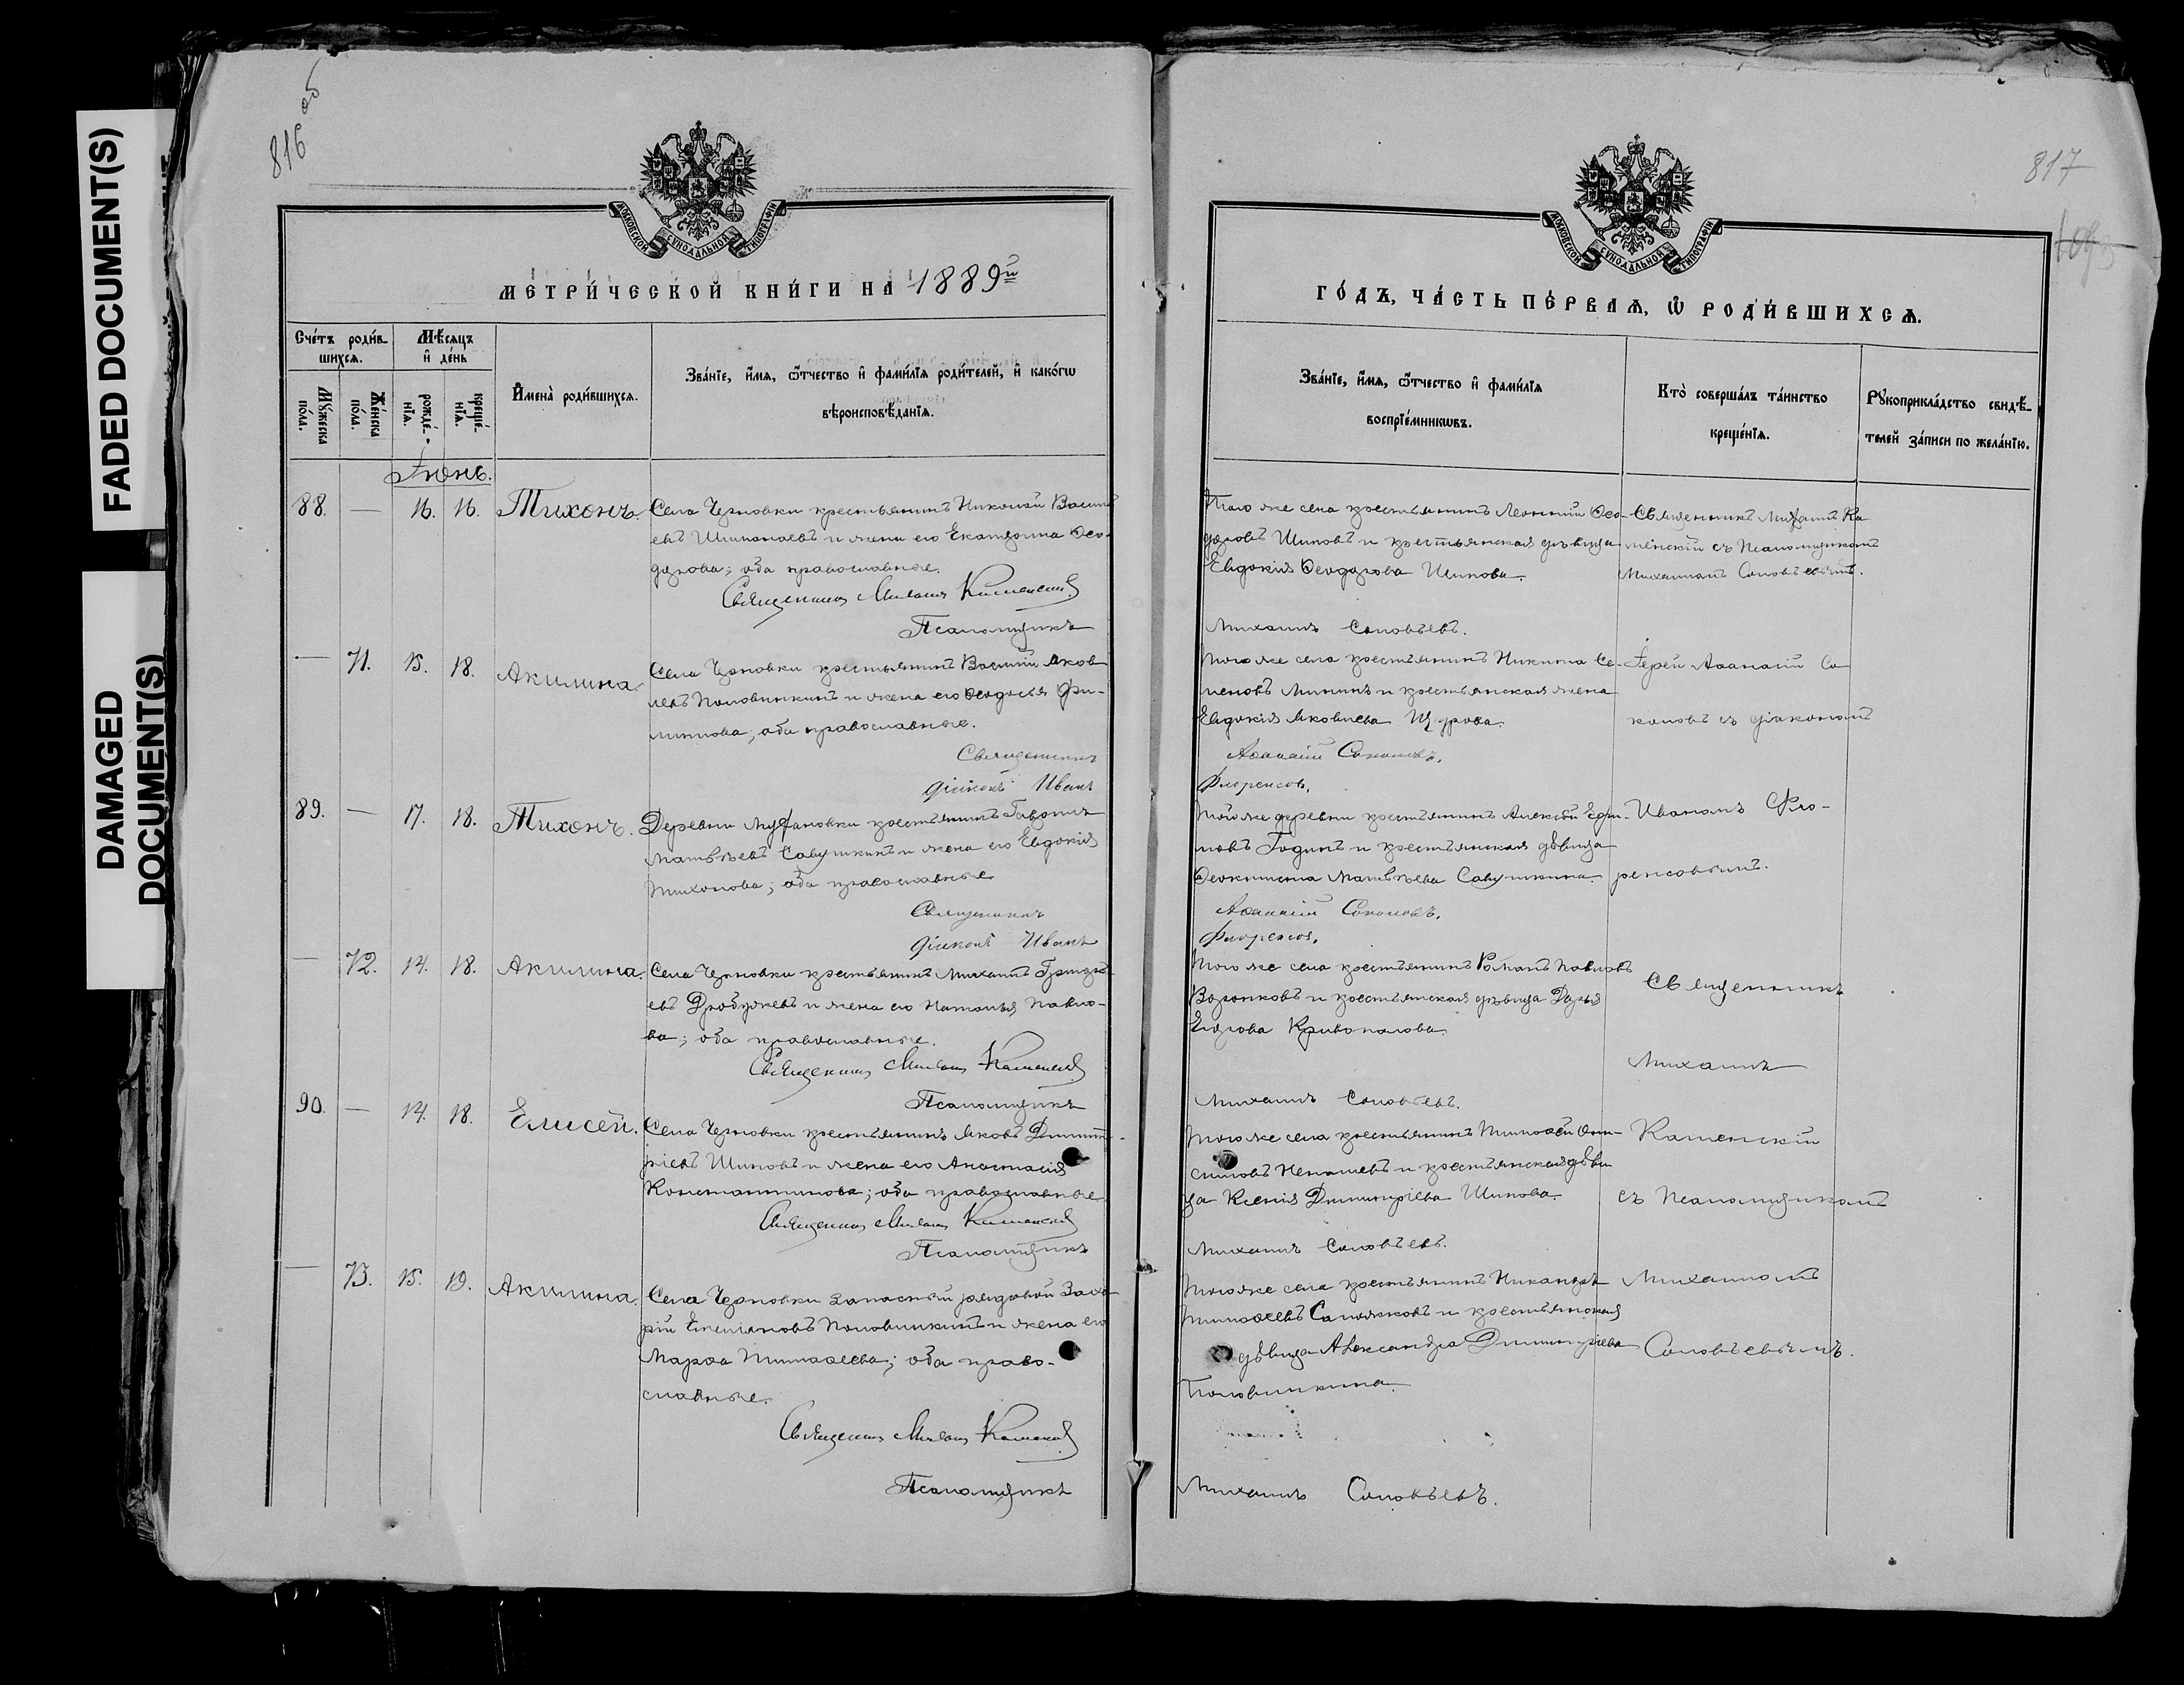 FADED DOCUMENT(S)
DAMAGED
DOCUMENT(S)
816 об
МОСКОВСКОЙ СУНОДАЛЬНОЙ ТИПОГРАФІИ
МЕТРИ́ЧЕСКОЙ КНИ́ГИ НА 1889й
Сче́тъ роди́в-
шихся.
Мѣ́сяцъ
и҆ де́нь
Мꙋ́жеска
по́ла.
Же́нска
по́ла.
рожде́-
нїѧ.
креще́-
нїѧ.
И҆мена̀ роди́вшихсѧ.
Зва́нїе, и҆́мѧ, ѻ҆́тчество и҆ фами́лїѧ роди́телей, и҆ како́гѡ
вѣроисповѣ́данїѧ.
Іюнь.
88. — 16. 16. Тихонъ. Села Черновки крестьянинъ Николай Василь
евъ Шишкаевъ и жена его Екатерина Ѳео-
дорова; оба православные.
Священникъ Михаилъ Каменскій
Псаломщикъ
— 71. 15. 18. Акилина. Села Черновки крестьянинъ Василій Яков
левъ Половинкинъ и жена его Ѳеодосья Фи-
липпова; оба православные.
Священникъ
Діаконъ Иванъ
89. — 17. 18. Тихонъ. Деревни Мухановки крестьянинъ Гавріилъ
Матвѣевъ Савушкинъ и жена его Евдокія
Тихонова; оба православные
Священникъ
Діаконъ Иванъ
— 72. 14. 18. Акилина. Села Черновки крестьянинъ Михаилъ Григорь
евъ и жена его Наталья Павло-
ва; оба православные.
Священникъ Михаилъ Каменскій
Псаломщикъ
90. — 14. 18. Елисей. Села Черновки крестьянинъ Яковъ Димит-
ріевъ Шиповъ и жена его Анастасія
Константинова; оба православные
Священникъ Михаилъ Каменскій
Псаломщикъ
— 73. 15. 19. Акилина. Села Черновки запасный рядовой Заха
рій Емельяновъ Половинкинъ и жена его
Марѳа Тимоѳеева; оба право-
славные.
Священникъ Михаилъ Каменскій
Псаломщикъ
817
МОСКОВСКОЙ СУНОДАЛЬНОЙ ТИПОГРАФІИ
ГО́ДЪ, ЧА́СТЬ ПЕ́РВАѦ, Ѡ҆ РОДИ́ВШИХСѦ.
Зва́нїе, и҆́мѧ, ѻ҆́тчество и҆ фами́лїѧ
воспрїе́мникѡвъ.
Кто̀ соверша́лъ та́инство
креще́нїѧ.
Рꙋкоприкла́дство свидѣ́-
телей за́писи по жела́нїю.
Того же села крестьянинъ Леонтій Ѳео-
доровъ Шиповъ и крестьянская дѣвица
Евдокія Ѳеодорова Шипова.
Священникъ Михаилъ Ка
менскій съ Псаломщикомъ
Михаиломъ Соловьевымъ.
Михаилъ Соловьевъ.
Того же села крестьянинъ Никита Се-
меновъ Мининъ и крестьянская жена
Евдокія Яковлева Щурова.
Іерей Аѳанасій Со
коловъ съ діакономъ
Аѳанасій Соколовъ.
Флоренсовъ.
Той же деревни крестьянинъ Алексѣй Ефи-
мовъ Годинъ и крестьянская дѣвица
Ѳеоктиста Матвѣева Савушкина.
Иваномъ Фло-
ренсовымъ.
Аѳанасій Соколовъ.
Флоренсовъ.
Того же села крестьянинъ Романъ Павловъ
и крестьянская дѣвица Дарья
Егорова Кривопалова.
Священникъ
Михаилъ
Михаилъ Соловьевъ.
Того же села крестьянинъ Тимоѳей Они-
симовъ Ненашевъ и крестьянская дѣви
ца Ксенія Димитріева Шипова.
Каменскій
съ Псаломщикомъ
Михаилъ Соловьевъ.
Того же села крестьянинъ Никандръ
Тимоѳеевъ Сапожковъ и крестьянская
дѣвица Александра Димитріева
Половинкина.
Михаиломъ
Соловьевымъ.
Михаилъ Соловьевъ.